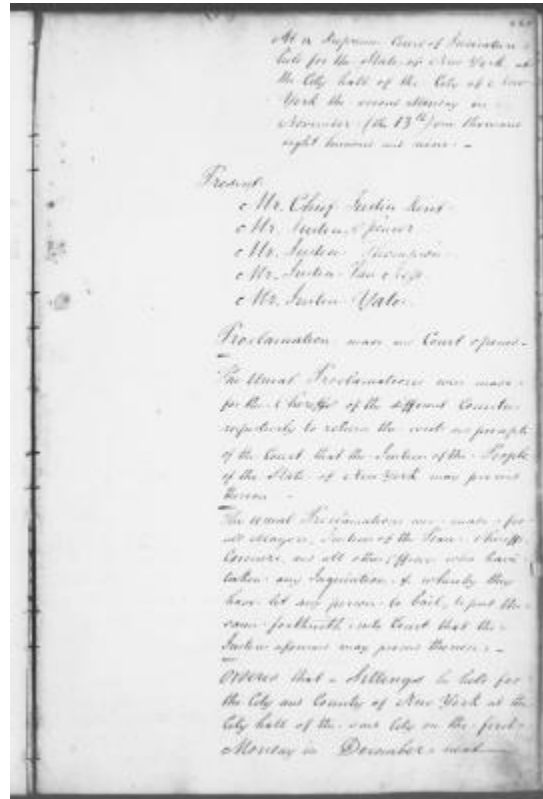 At a Supreme Court of Judicature
held for the State of New York at
the City hall of the City of New
York the second Monday in
November (the 13th) one thousand
eight hundred and nine. -
Present
Mr. Chief Justice Kent
Mr. Justice Spencer
Mr. Justice Thompson
Mr. Justice Van Ness
Mr. Justice Yates
Proclamation made and Court opened -
The Usual Proclamations were made
for the Sheriffs of the different Counties
respectively to return the writs and precepts
of the Court that the Justices of the People
of the State of New York may proceed
thereon -
The usual Proclamations were made for
all Mayors, Justices of the Peace, Sheriffs,
Coroners, and all other Officers who have
taken any Inquisition & whereby they
have let any person to bail, to put the
same forthwith into Court that the
Justices aforesaid may proceed thereon. -
Ordered that a Sittings be held for
the City and County of New York at the
City hall of the said City on the first
Monday in December next